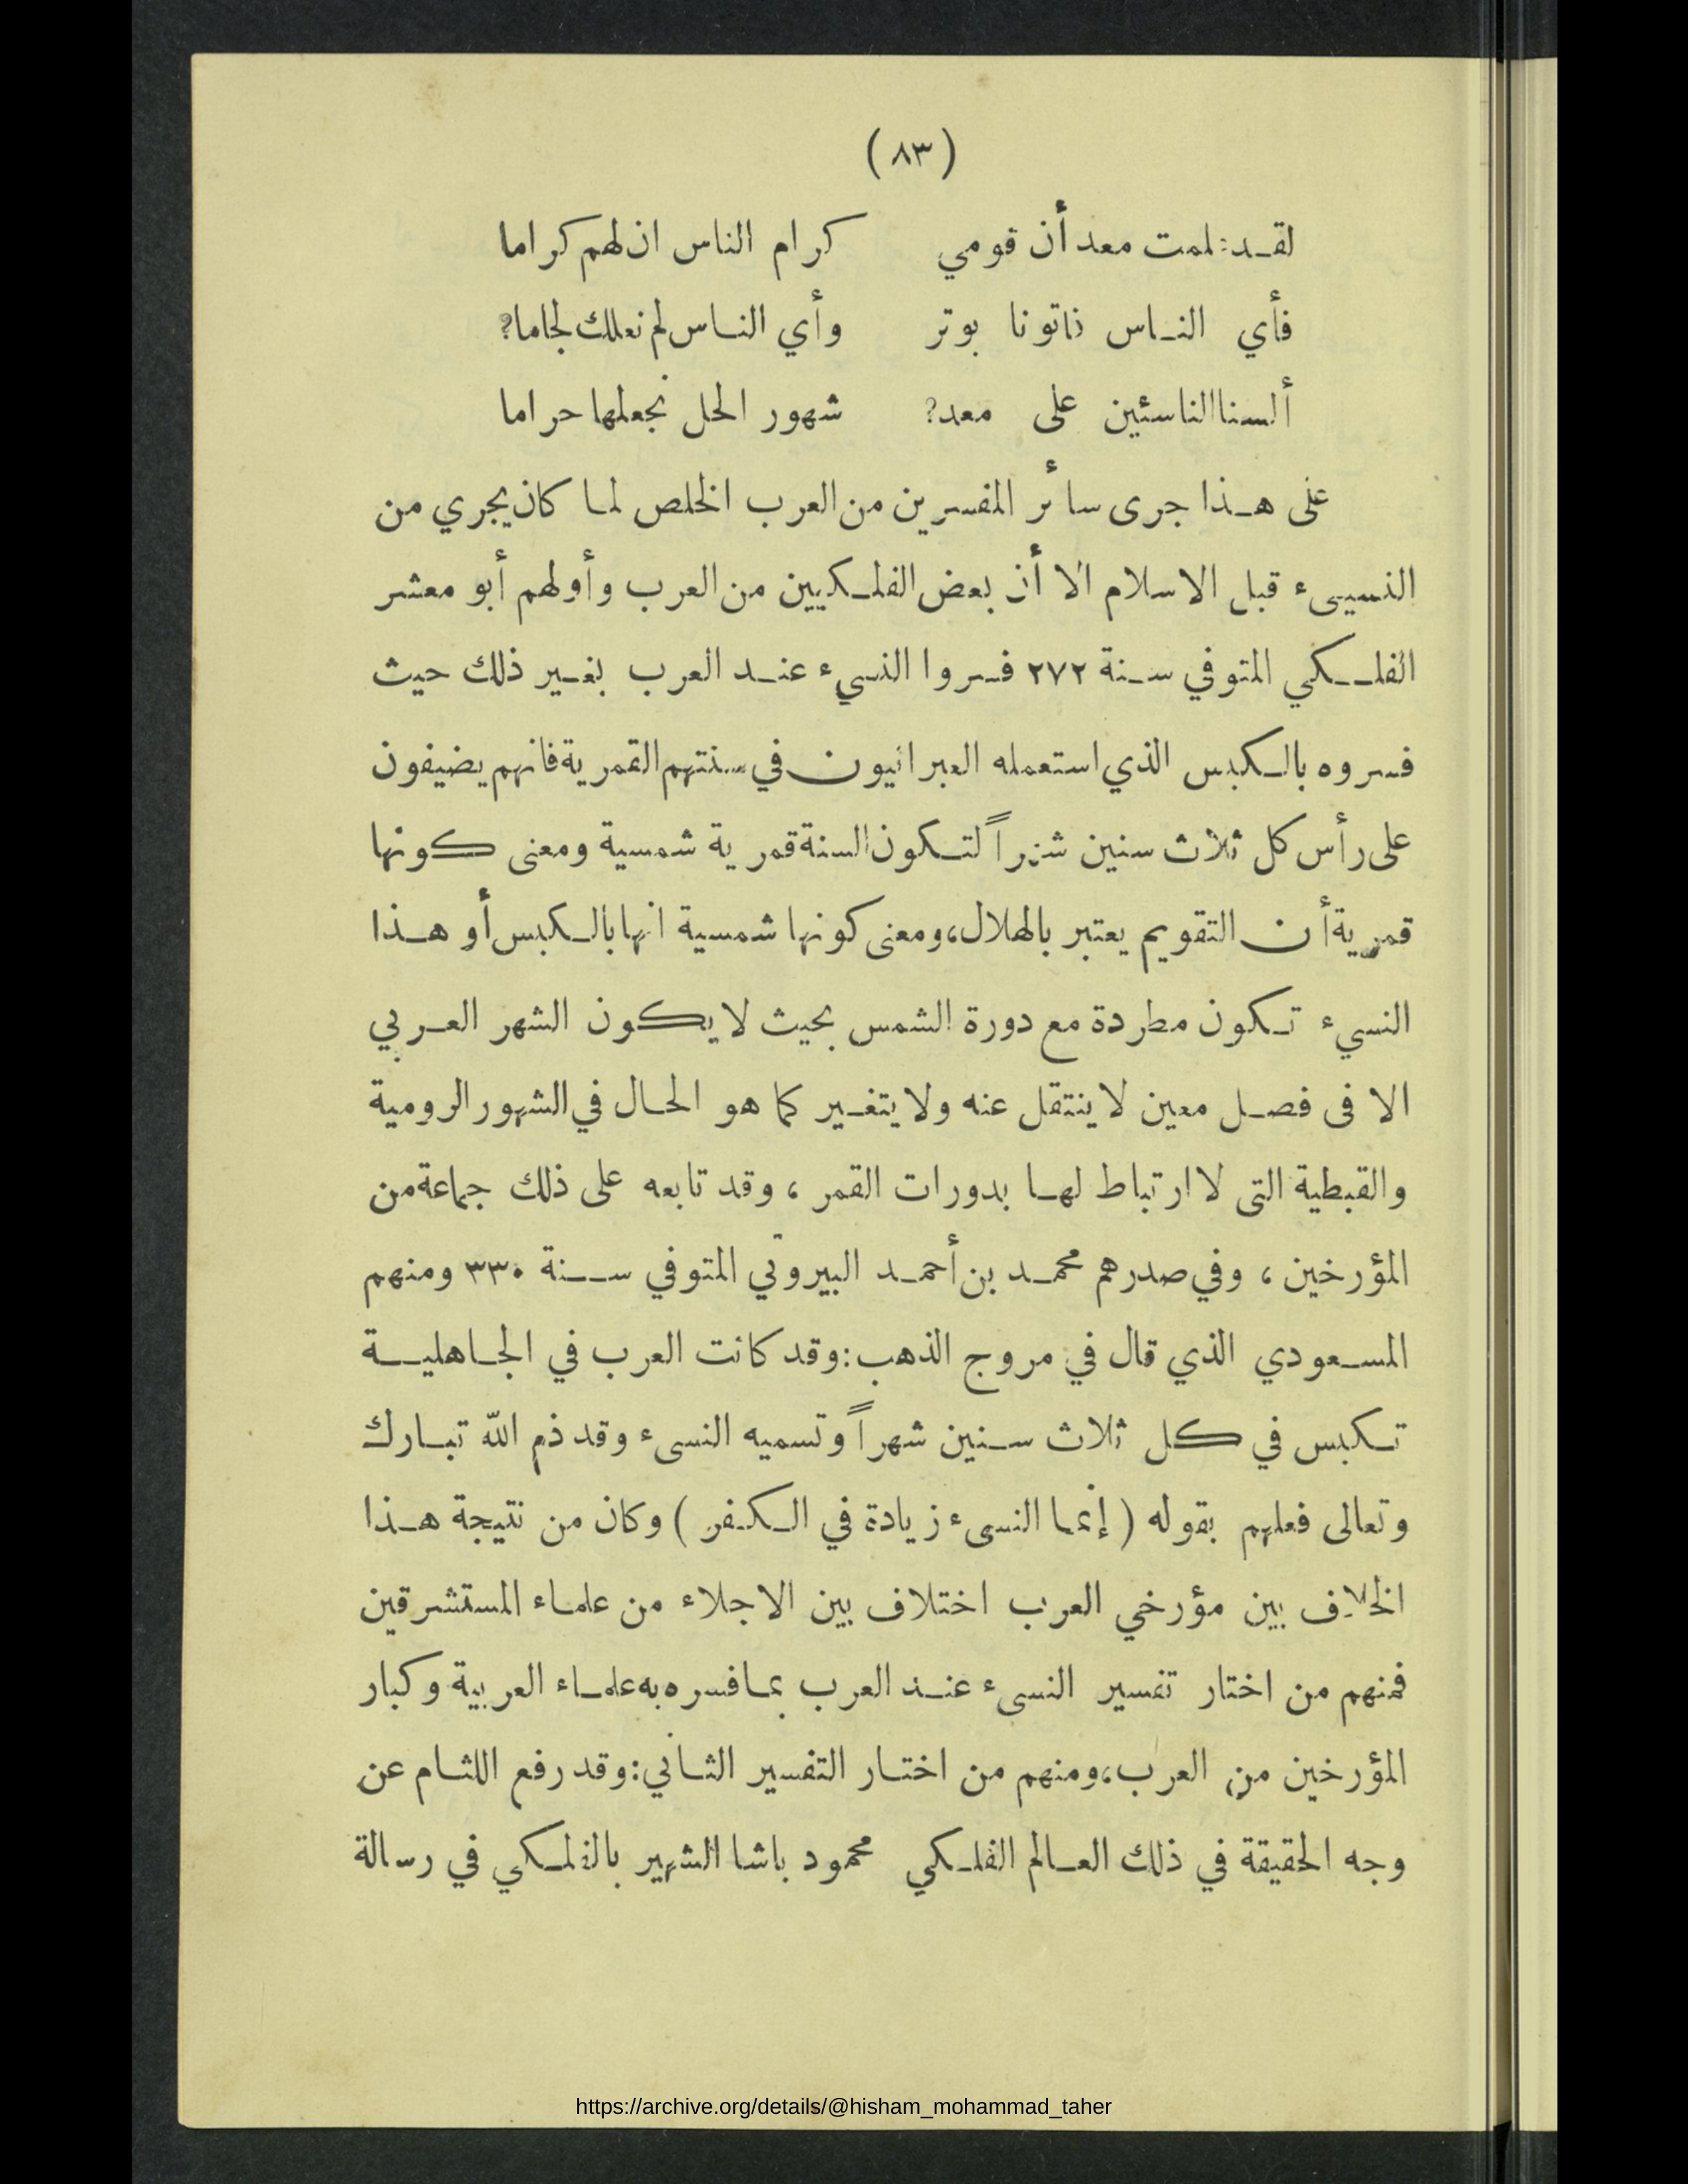 (٨٣)
لقد علمت معد أن قومي كرام الناس ان لهم كراما
فأي الناس فاتونا بوتر وأي الناس لم نعلك لجاما؟
ألسنا الناسئين على معد؟ شهور الحل نجعلها حراما
على هذا جرى سائر المفسرين من العرب الخلص لما كان يجري من
النسيىء قبل الاسلام الا أن بعض الفلكيين من العرب وأولهم أبو معشر
الفلكي المتوفي سنة ٢٧٢ فسروا النسيء عند العرب بغير ذلك حيث
فسروه بالكبس الذي استعمله العبرانيون في سنتهم القمرية فانهم يضيفون
على رأس كل ثلاث سنين شهراً لتكون السنة قمرية شمسية ومعنى كونها
قمرية أن التقويم يعتبر بالهلال، ومعنى كونها شمسية انها بالكبس أو هذا
النسيء تكون مطردة مع دورة الشمس بحيث لا يكون الشهر العربي
الا فى فصل معين لا ينتقل عنه ولا يتغير كما هو الحال في الشهور الرومية
والقبطية التى لا ارتباط لها بدورات القمر ، وقد تابعه على ذلك جماعة من
المؤرخين ، وفي صدرهم محمد بن أحمد البيروني المتوفي سنة ٣٣٠ ومنهم
المسعودي الذي قال في مروج الذهب: وقد كانت العرب في الجاهلية
تكبس في كل ثلاث سنين شهراً وتسميه النسىء وقد ذم الله تبارك
وتعالى فعلهم بقوله ( إنما النسىء زيادة في الكفر ) وكان من نتيجة هذا
الخلاف بين مؤرخي العرب اختلاف بين الاجلاء من علماء المستشرقين
فمنهم من اختار تفسير النسىء عند العرب بما فسره به علماء العربية وكبار
المؤرخين من العرب، ومنهم من اختار التفسير الثاني: وقد رفع اللثام عن
وجه الحقيقة في ذلك العالم الفلكي محمود باشا الشهير بالفلكي في رسالة
https://archive.org/details/@hisham_mohammad_taher